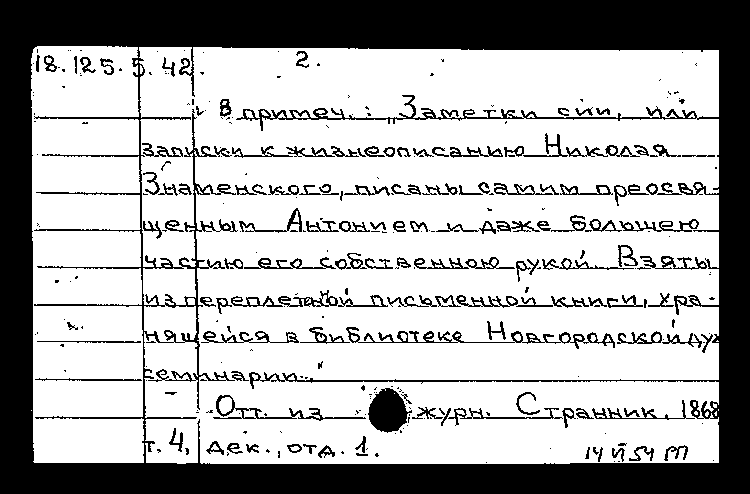 18.125.5.42. 2.
В примеч.: „Заметки сии, или
записки к жизнеописанию Николая
Знаменского, писаны самим преосвя-
щенным Антонием и даже большею
частию его собственною рукой. Взяты
из переплетной письменной книги, хра-
нящейся в библиотеке Новгородской дух
семинарии."
Отт. из журн. Странник. 1868
т. 4, дек., отд. 1.
14 VI 54 РП